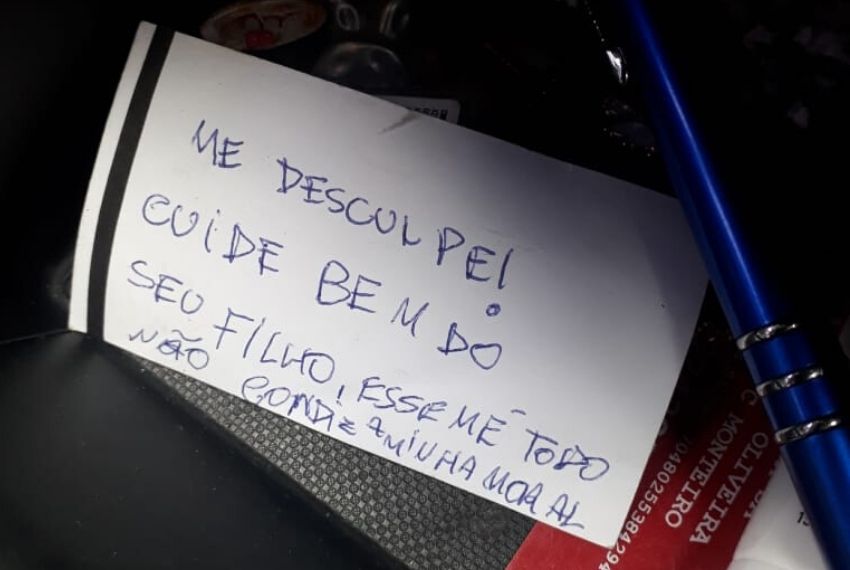 ME DESCULPE!
CUIDE BEM DO
SEU FILHO, ESSE MÉTODO
NÃO CONDIZ A MINHA MORAL
OLIVEIRA
MONTEIRO